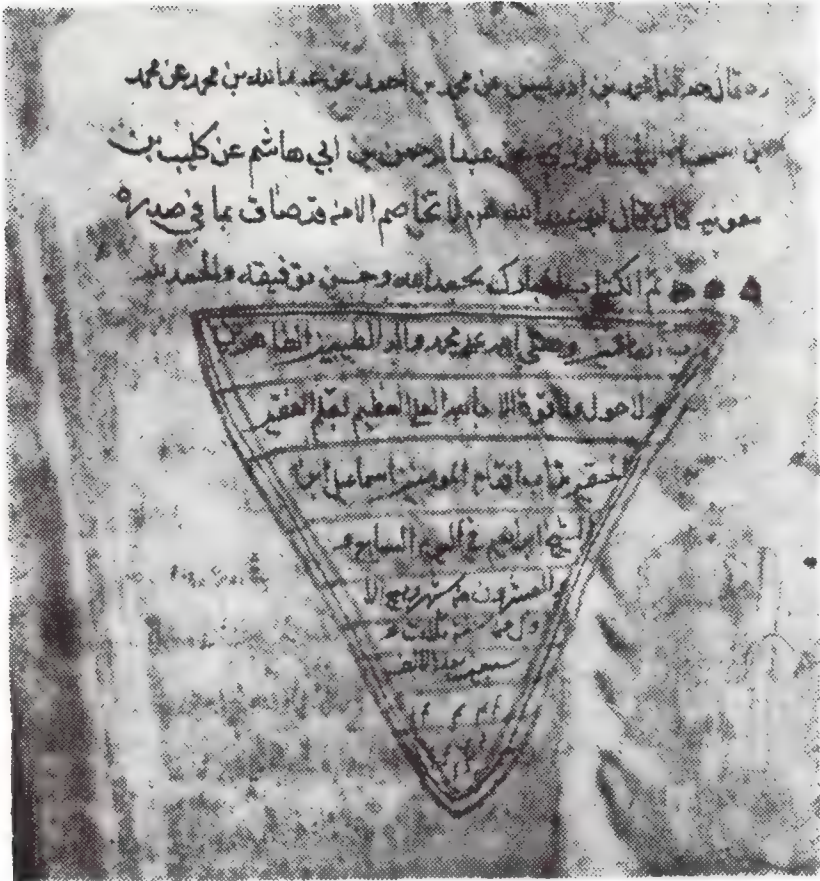 قال حدثنا احمد بن ادريس عن محمد بن احمد عن عبد الله بن محمد عن محمد
بن عن عبد الرحمن بن ابي هاشم عن كليب بن
معويه قال قال ابو عبد الله عم لا يخاصم الا من قد ضاق بما في صدره
تم الكتاب المبارك بحمد الله وحسن توفيقه والحمد لله
رب العالمين وصلى الله على محمد واله الطيبين الطاهرين
ولا حول ولا قوة الا بالله العلي العظيم الفقير
الحقير تراب اقدام المومنين اسماعيل ابن
الشيخ ابراهيم في اليوم السابع
والعشرون من شهر ربيع الا
ول
سبعين بعد الالف